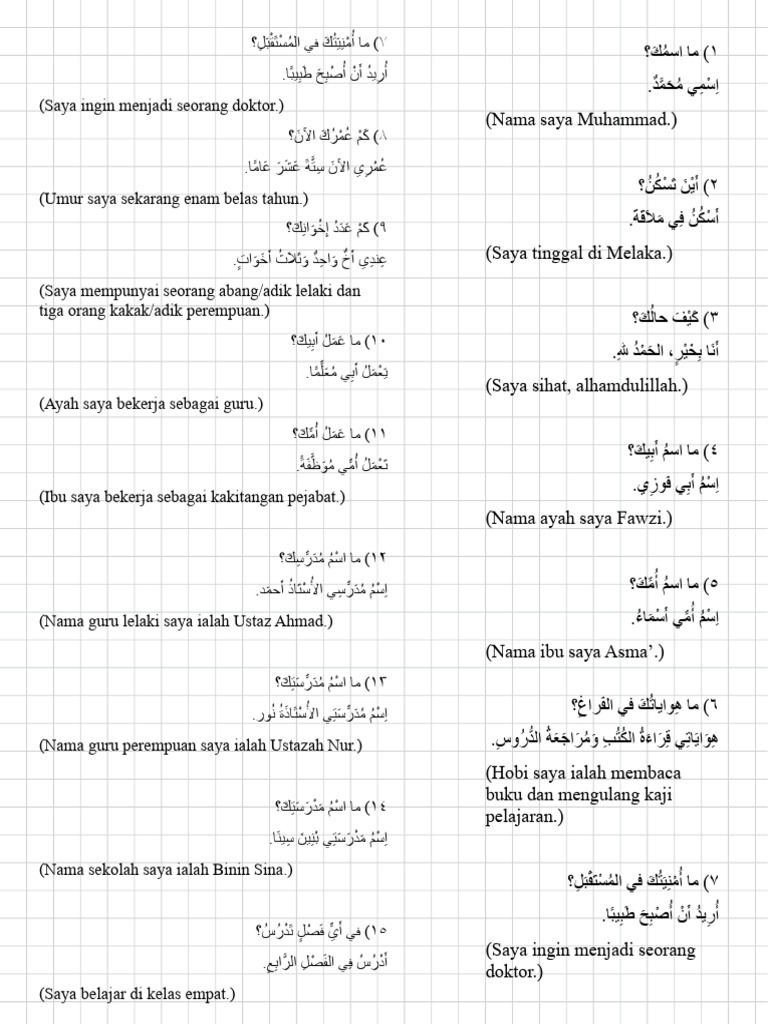 ١) ما اسمُكَ؟
اِسْمِي مُحَمَّدٌ.
(Nama saya Muhammad.)
٢) أَيْنَ تَسْكُنُ؟
أَسْكُنُ فِي مَلَاقَةَ.
(Saya tinggal di Melaka.)
٣) كَيْفَ حالُكَ؟
أَنَا بِخَيْرٍ، الحَمْدُ للهِ.
(Saya sihat, alhamdulillah.)
٤) ما اسمُ أَبِيكَ؟
اِسْمُ أَبِي فَوزِي.
(Nama ayah saya Fawzi.)
٥) ما اسمُ أُمِّكَ؟
اِسْمُ أُمِّي أَسْمَاءُ.
(Nama ibu saya Asma’.)
٦) ما هِواياتُكَ في الفَراغِ؟
هِوَايَاتِي قِرَاءَةُ الكُتُبِ وَمُرَاجَعَةُ الدُّرُوسِ.
(Hobi saya ialah membaca
buku dan mengulang kaji
pelajaran.)
٧) ما أُمْنِيَتُكَ في المُسْتَقْبَلِ؟
أُرِيدُ أَنْ أُصْبِحَ طَبِيبًا.
(Saya ingin menjadi seorang
doktor.)
٧) ما أُمْنِيَتُكَ في المُسْتَقْبَلِ؟
أُرِيدُ أَنْ أُصْبِحَ طَبِيبًا.
(Saya ingin menjadi seorang doktor.)
٨) كَمْ عُمْرُكَ الآنَ؟
عُمْرِي الآنَ سِتَّةَ عَشَرَ عَامًا.
(Umur saya sekarang enam belas tahun.)
٩) كَمْ عَدَدُ إِخْوَانِكَ؟
عِندِي أَخٌ وَاحِدٌ وَثَلاثُ أَخَوَاتٍ.
(Saya mempunyai seorang abang/adik lelaki dan
tiga orang kakak/adik perempuan.)
١٠) ما عَمَلُ أَبِيكَ؟
يَعْمَلُ أَبِي مُعَلِّمًا.
(Ayah saya bekerja sebagai guru.)
١١) ما عَمَلُ أُمِّكَ؟
تَعْمَلُ أُمِّي مُوَظَّفَةً.
(Ibu saya bekerja sebagai kakitangan pejabat.)
١٢) ما اسْمُ مُدَرِّسِكَ؟
اِسْمُ مُدَرِّسِي الأُسْتَاذُ أحمَد.
(Nama guru lelaki saya ialah Ustaz Ahmad.)
١٣) ما اسْمُ مُدَرِّسَتِكَ؟
اِسْمُ مُدَرِّسَتِي الأُسْتَاذَةُ نُور.
(Nama guru perempuan saya ialah Ustazah Nur.)
١٤) ما اسْمُ مَدْرَسَتِكَ؟
اِسْمُ مَدْرَسَتِي بْنِينَ سِينَا.
(Nama sekolah saya ialah Binin Sina.)
١٥) في أَيِّ فَصْلٍ تَدْرُسُ؟
أَدْرُسُ فِي الفَصْلِ الرَّابِعِ.
(Saya belajar di kelas empat.)